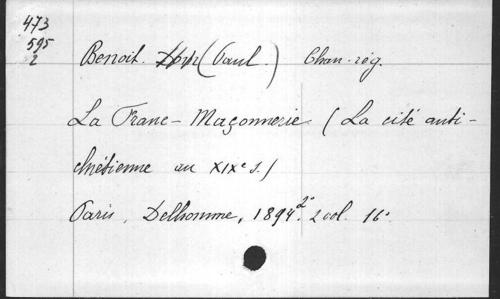 473
595
2
Benoit. (Paul.) Chan. rég.
La Franc-Maçonnerie (La cité anti-
chrétienne au XIXe s.)
Paris, Delhomme, 1894². 2 vol. 16°